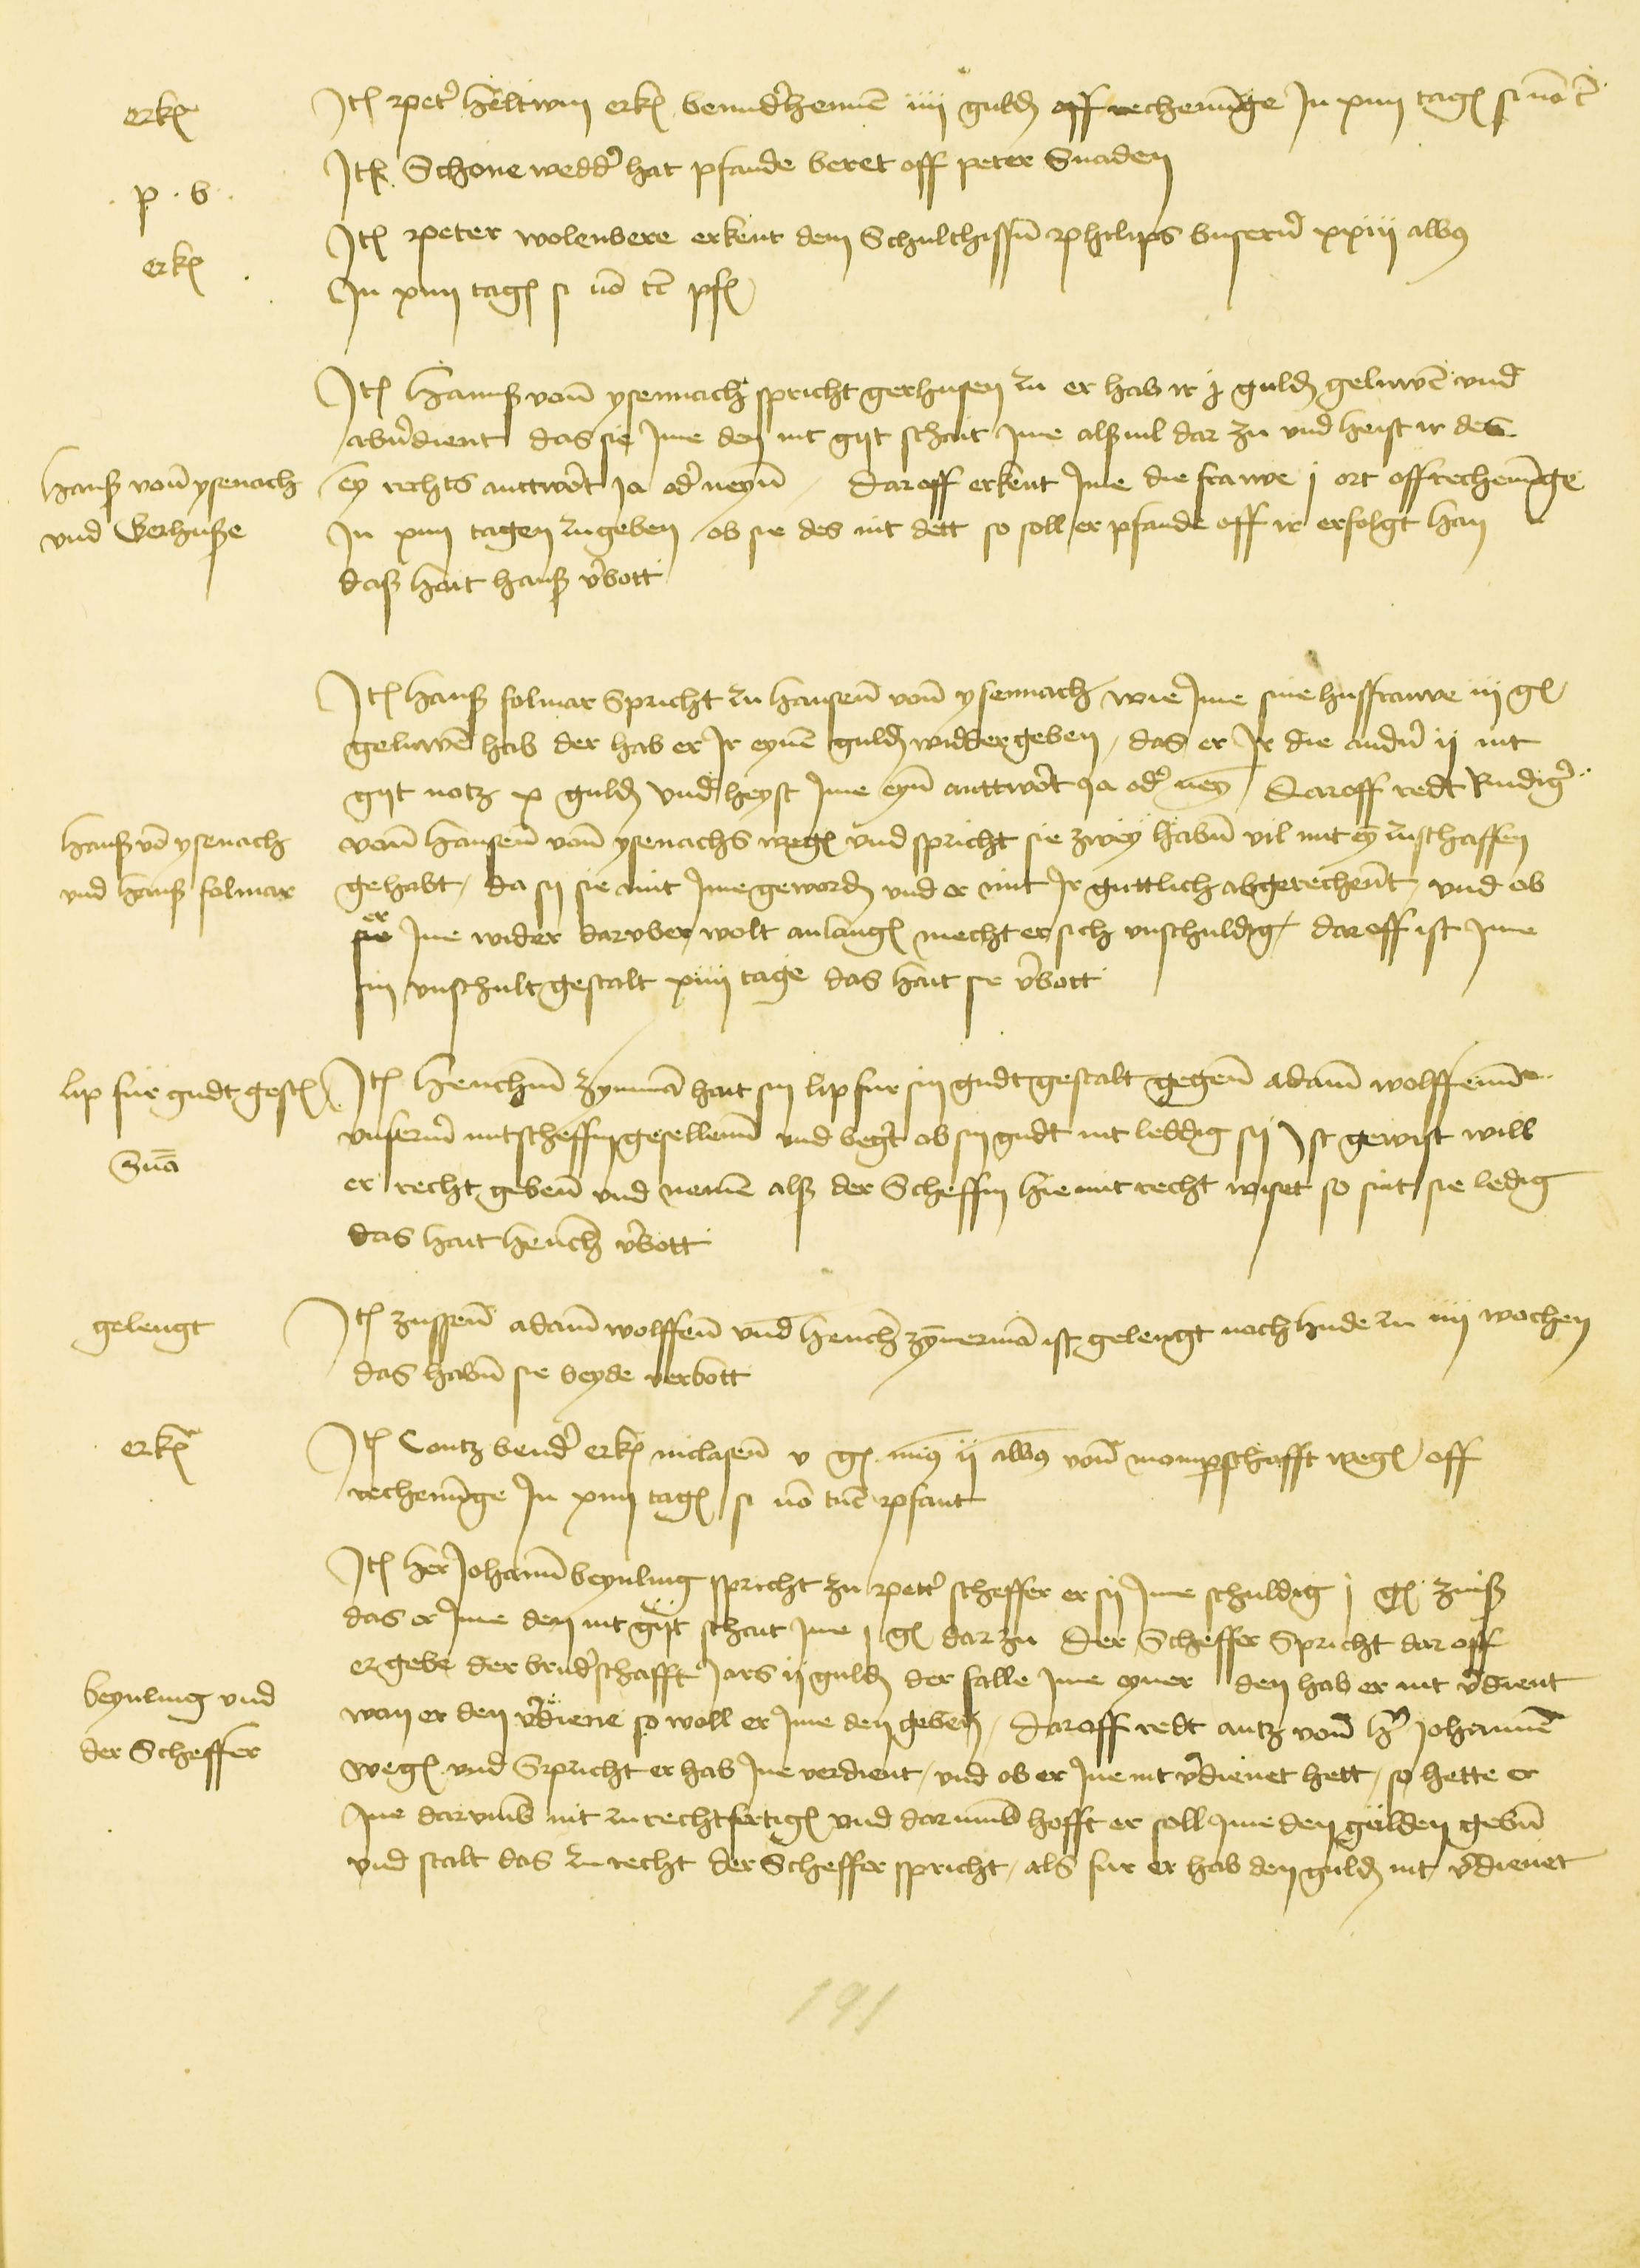 erk
Jt peter heltwin erk benderhennen iiii guld off rechenunge Jn xiiii tag si no t
p . b .
Jt Schonewedder hat pfande beret off peter Snaden
erk
Jt peter wolenbere erkent dem Schulthissen philips buseren xxiii albus
Jn xiiii tag si no tc pf
Jt Hanns von ysennach spricht gerhusen zu er hab ir j guld geluwen vnd
abverdient das sie Jme den nit git schait jme alßuil dar zu vnd heist ir des
hans von ysenach
vnd Gerhuße
ey rechts anttwort ja oder neyn / dar off erkent Jme die frauwe j ort off rechenunge
Jn xiiii tagen zu geben ob sie des nit dett so soll er pfande off ir erfolgt han
daß hait hanß verbott
Jt hanß folmar Spricht zu hansen von ysennach wie Jme sine husfrauwe iij gl
geluwen hab der hab er Jr eynen guld widdergeben / das er Jr die andern ij nit
git notz x guld vnd heyst Jme eyn anttwort ja oder neyn / Dar off redt Rudiger
hanß von ysenach
vnd hanß folmar
von hansen von ysenachs weg vnd spricht sie zwey habn vil mit ey zuschaffen
gehabt / da sij sie mit Jme geword vnd er mit Jr guttlich abgerechent / vnd ob
er
sie Jme wider daruber wolt anlang mecht er sich vnschuldig / dar off ist Jme
sin vnschult gestalt xiiii tage das hait sie verbott
lip fur gudt gest
Zuma
Jt Henchin zymma hait sin lip fur sin gudt gestalt gegen adam wolffenn
vnserm mitscheffingesellenn vnd begert ob sin gudt nit leddig sij Jst gewist will
er recht geben vnd nemen alß der Scheffin hie mit recht wiset so sint sie ledig
das hait hench verbott
gelengt
Jt zussen adam wolffen vnd hench zymerma ist gelengt noch hude zu iiii wochen
das habn sie beyde verbott
erk
Jt Contz bender erk niclasen v gl mius ij albus von mompschafft weg off
rechenunge Jn xiiii tag si no tuc pfant
Jt her Johann beynling spricht zu peter scheffer er sij Jme schuldig j gl zinß
das er Jme den nit gijt schait jme j gl dar zu Der Scheffer Spricht dar off
er gebe der bruderschafft Jars ij guld der falle Jme eyner den hab er nit verdient
beynling vnd
der Scheffer
wan er den verdiene so woll er Jme den geben / dar off redt antz von h Johannen
weg vnd Spricht er hab Jne verdient / vnd ob er Jne nit verdienet hett / so hette er
Jne darumb nit zu rechtfertig vnd darumb hofft er soll Jme den gulden geben
vnd stalt das zu recht der Scheffer spricht / als fur er hab den guld nit verdienet
191